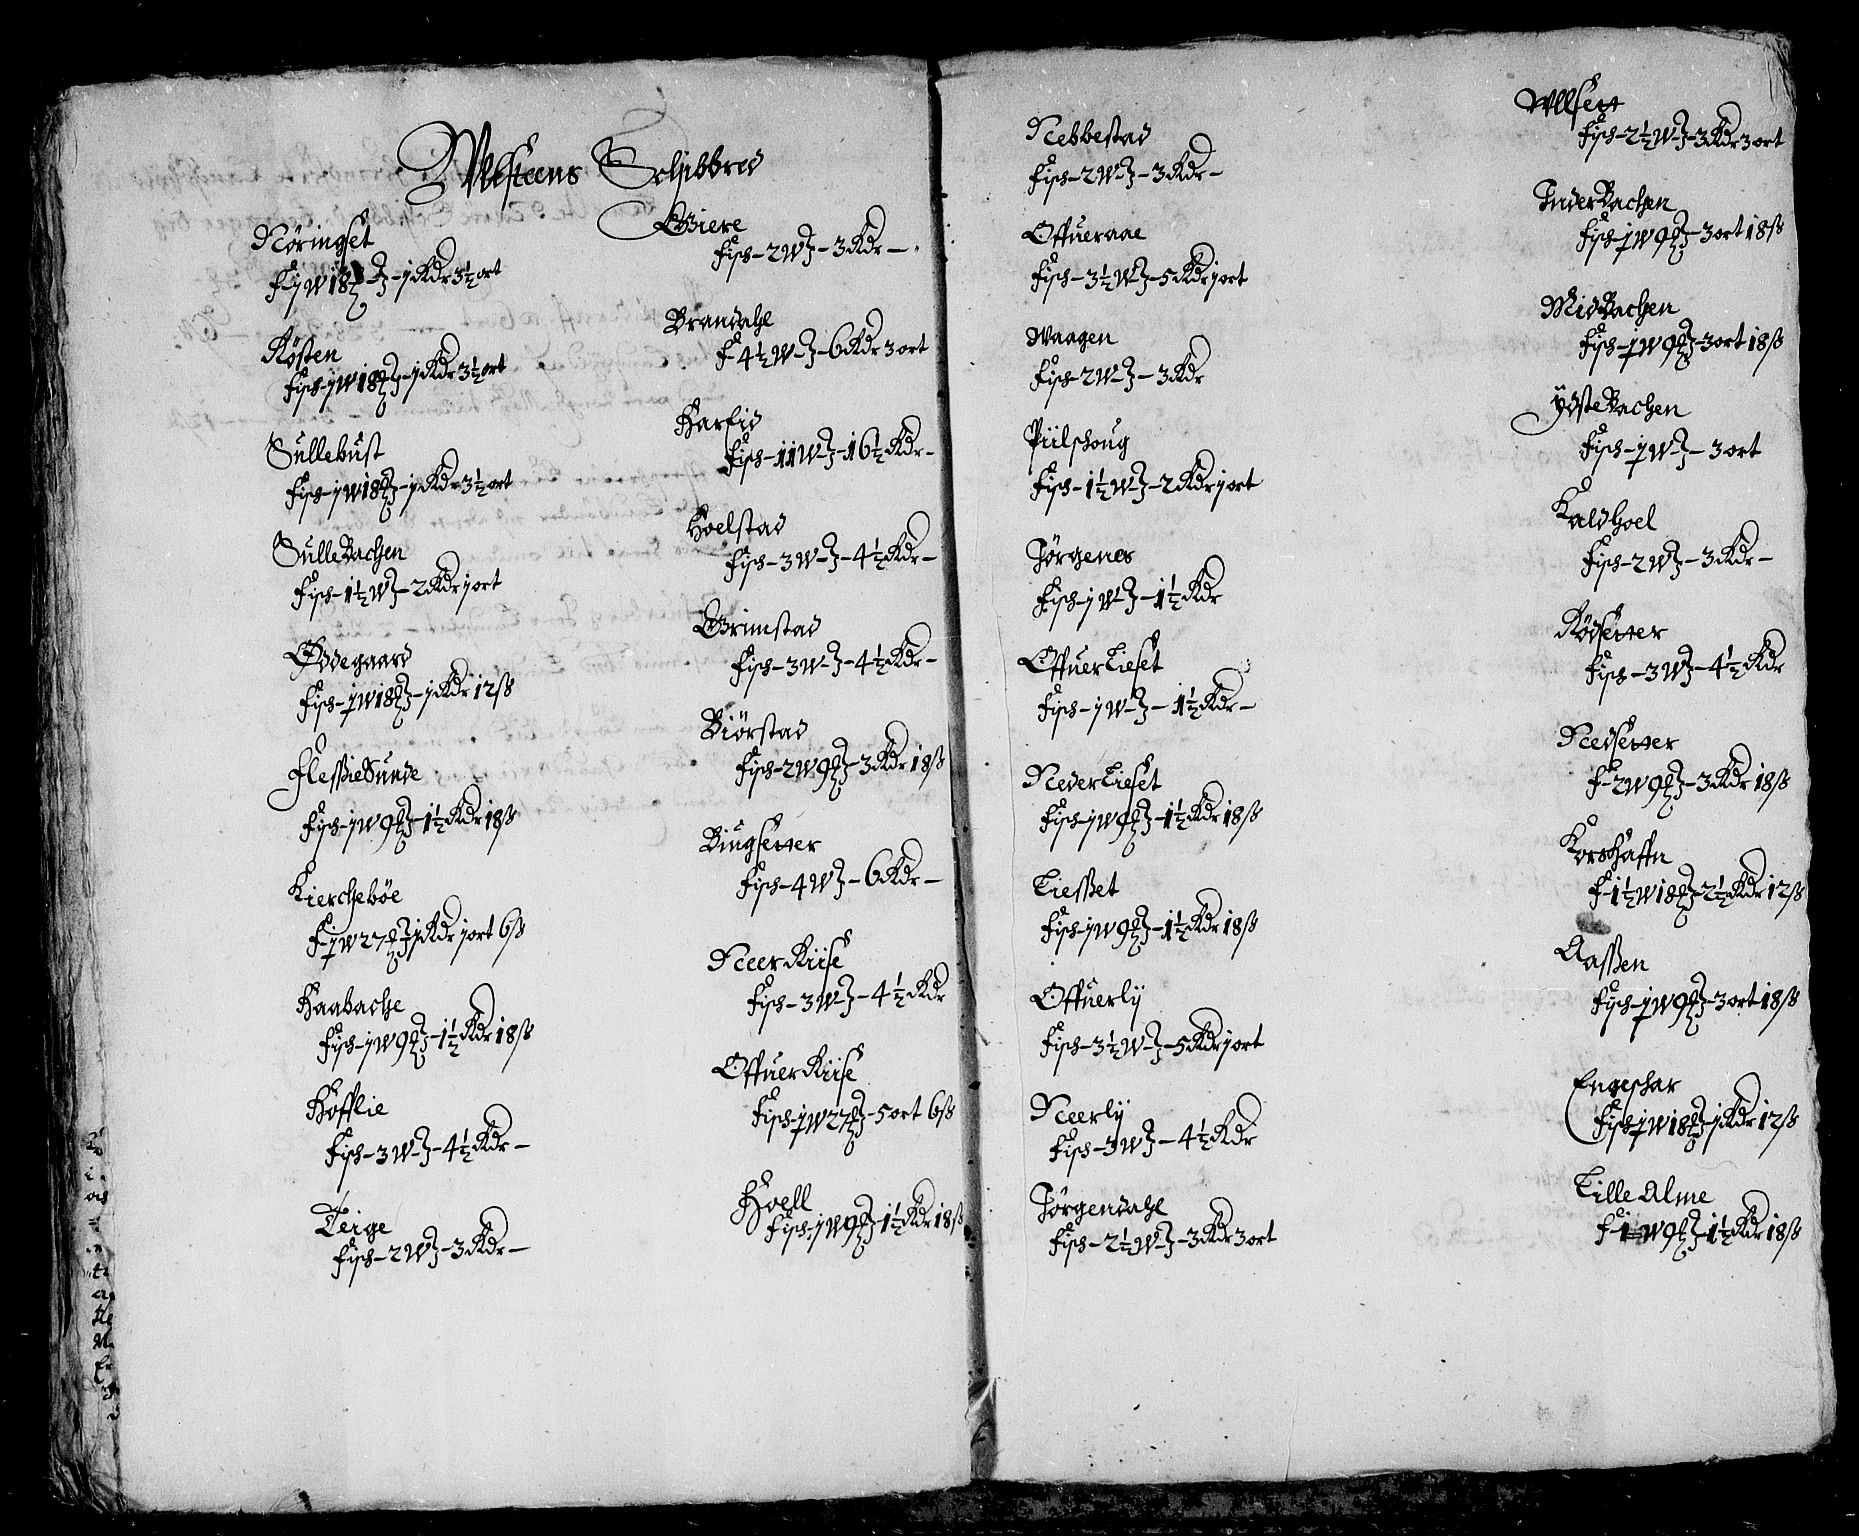 Ulfsteens Schibbred
Nöringset
F-j W 18 ℔ - j Rdr 3½ ort
Rösten
Fisch - j W 18 ℔ - j Rdr 3½ ort
Sullebust
Fisch - j W 18 ℔ - j Rdr 3½ ort
SulleBachen
Fisch - 1½ W - 2 Rdr j ort
Ödegaard
Fisch - j W 18 ℔ - j Rdr 12 ß
FleßieSunde
Fisch - j W 9 ℔ - 1½ Rdr 18 ß
Kiercheböe
F - j W 27 ℔ j Rdr j ort 6 ß
Haabache
Fisch - j W 9 ℔ - 1½ Rdr 18 ß
Höfflie
Fisch - 3 W - 4½ Rdr -
Teige
Fisch - 2 W - 3 Rdr -
Giere
Fisch - 2 W - 3 Rdr -
Brandahl
F 4½ W - 6 Rdr 3 ort
HarEid
Fisch - 11 W - 16½ Rdr -
Hoelstad
Fisch - 3 W - 4½ Rdr -
Grimstad
Fisch - 3 W - 4½ Rdr -
Biörstad
Fisch - 2 W 9 ℔ - 3 Rdr 18 ß
Biugsetter
Fisch - 4 W - 6 Rdr -
Neer Riise
Fisch - 3 W - 4½ Rdr
Offuer Riise
Fisch - j W 27 ℔ - 5 ort 6 ß
Hoell
Fisch - j W 9 ℔ - 1½ Rdr 18 ß
Nebbestad
Fisch - 2 W - 3 Rdr -
Offueraae
Fisch - 3½ W - 5 Rdr j ort
Waagen
Fisch - 2 W - 3 Rdr
Piilshoug
Fisch - 1½ W - 2 Rdr j ort
Jörgenes
Fisch - j W - 1½ Rdr
OffuerLieset
Fisch - j W - 1½ Rdr -
NederLieset
Fisch - j W 9 ℔ - 1½ Rdr 18 ß
Ließet
Fisch - j W 9 ℔ - 1½ Rdr 18 ß
Offuerlij
Fisch - 3½ W - 5 Rdr j ort
Neerlij
Fisch - 3 W - 4½ Rdr
Jörgendahl
Fisch - 2½ W - 3 Rdr 3 ort
Ullsett
Fisch - 2½ W - 3 Rdr 3 ort
InderBachen
Fisch - j W 9 ℔ - 3 ort 18 ß
MidBachen
Fisch - j W 9 ℔ - 3 ort 18 ß
ÿdsteBachen
Fisch - j W - 3 ort
Kaldhoel
Fisch - 2 W - 3 Rdr -
Rödsetter
Fisch - 3 W - 4½ Rdr
Nedsetter
F - 2 W 9 ℔ - 3 Rdr 18 ß
Korshaffn
F - 1½ W 18 ℔ - 2½ Rdr 12 ß
Aaßen
Fisch - j W 9 ℔ - 3 ort 18 ß
Engeshar
Fisch - j W 18 ℔ - j Rdr 12 ß
Lille Alme
F - 1 W 9 ℔ - 1½ Rdr 18 ß